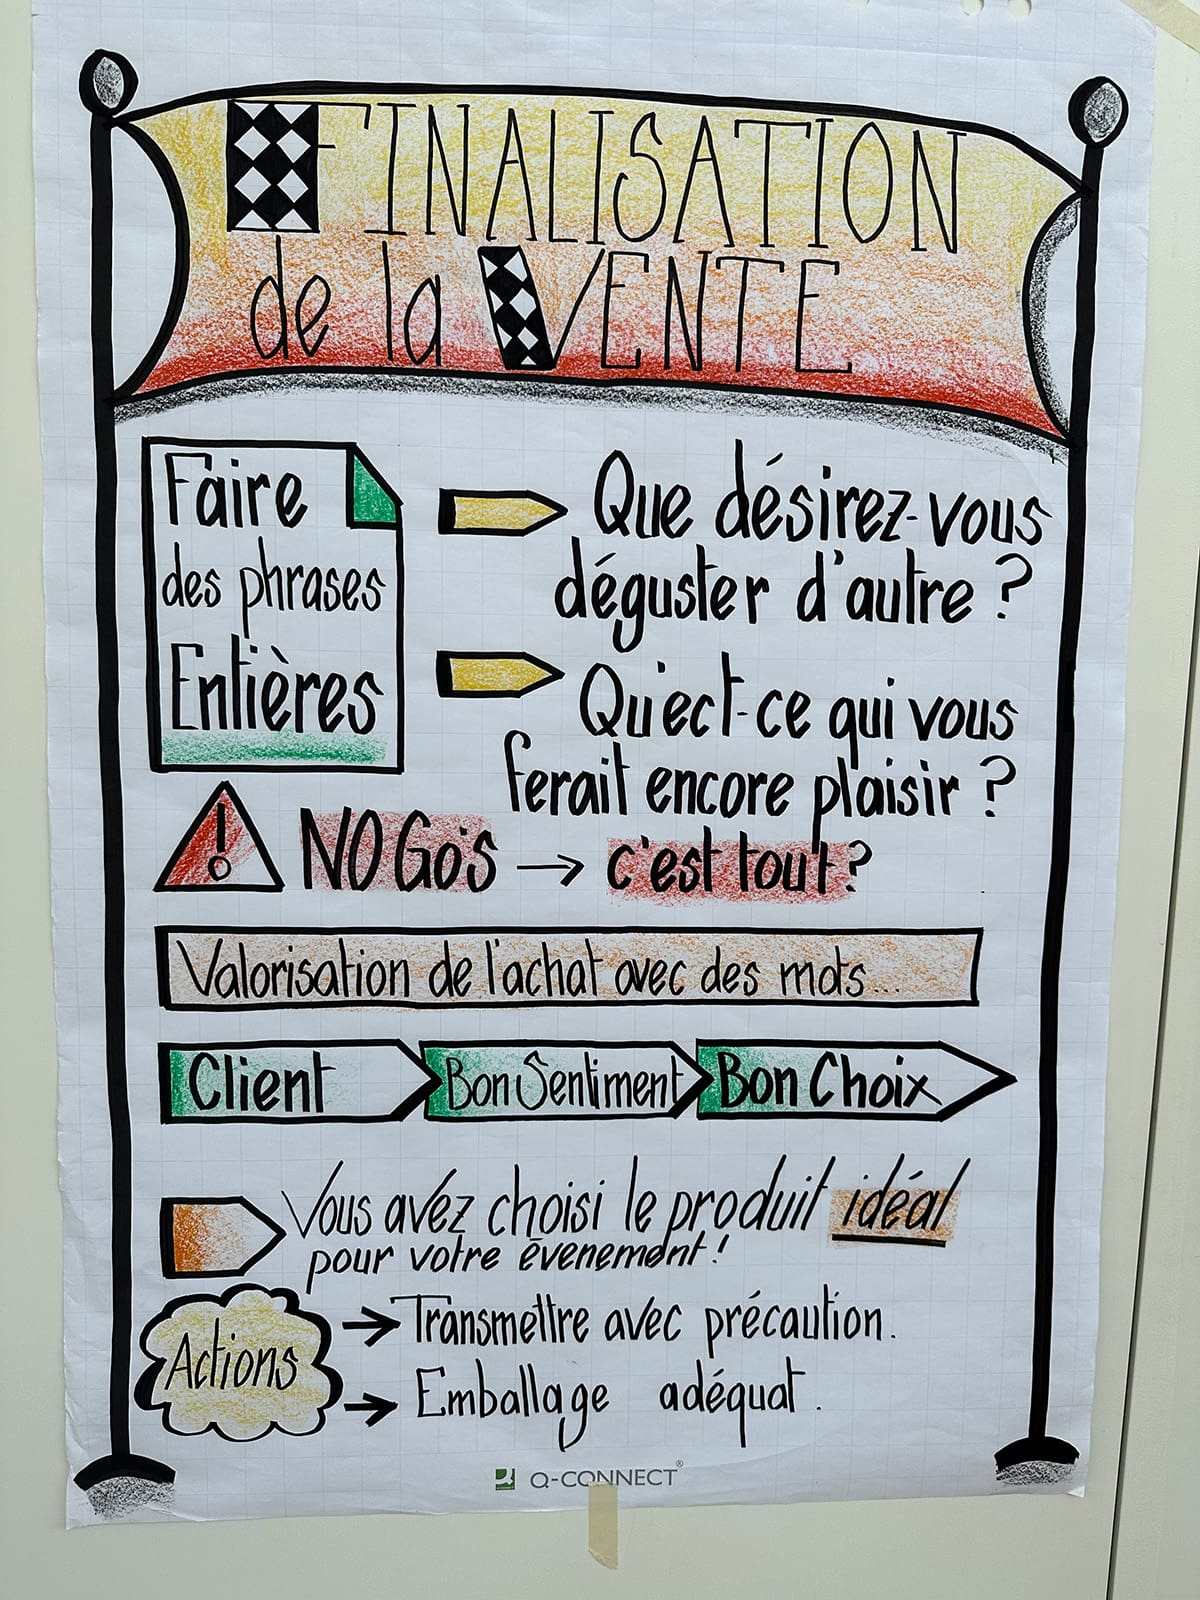 FINALISATION
de la VENTE
Faire
des phrases
Entières
Que désirez-vous
déguster d'autre ?
Qu'ect-ce qui vous
ferait encore plaisir ?
! NO Go's → c'est tout ?
Valorisation de l'achat avec des mots...
Client Bon Sentiment Bon Choix
Vous avez choisi le produit idéal
pour votre évenement !
Actions
→ Transmettre avec précaution.
→ Emballage adéquat.
Q-CONNECT®